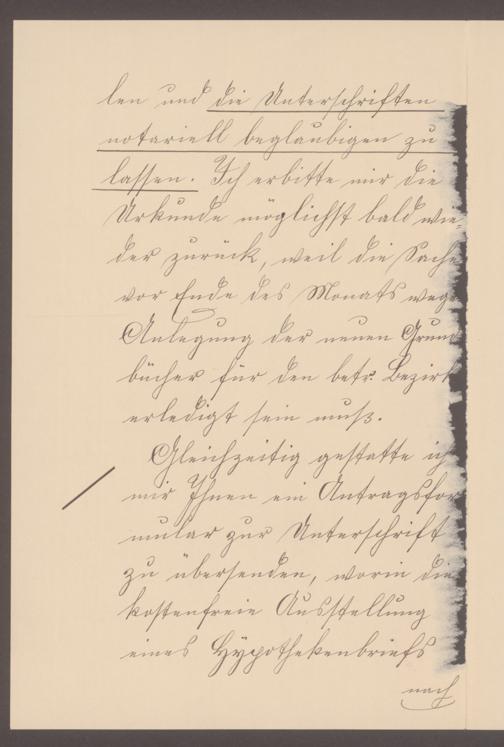 len und die Unterschriften
notariell beglaubigen zu
lassen. Ich erbitte mir die
Urkunde möglichst bald wie-
der zurück, weil die Sache
vor Ende des Monats weg
Anlegung der neuen Grund
bücher für den betr. Bezirk
erledigt sein muß.
Gleichzeitig gestatte ich
mir Ihnen ein Antragsfor
mular zur Unterschrift
zu übersenden, worin die
kostenfreie Ausstellung
eines Hypothekenbriefs
nach